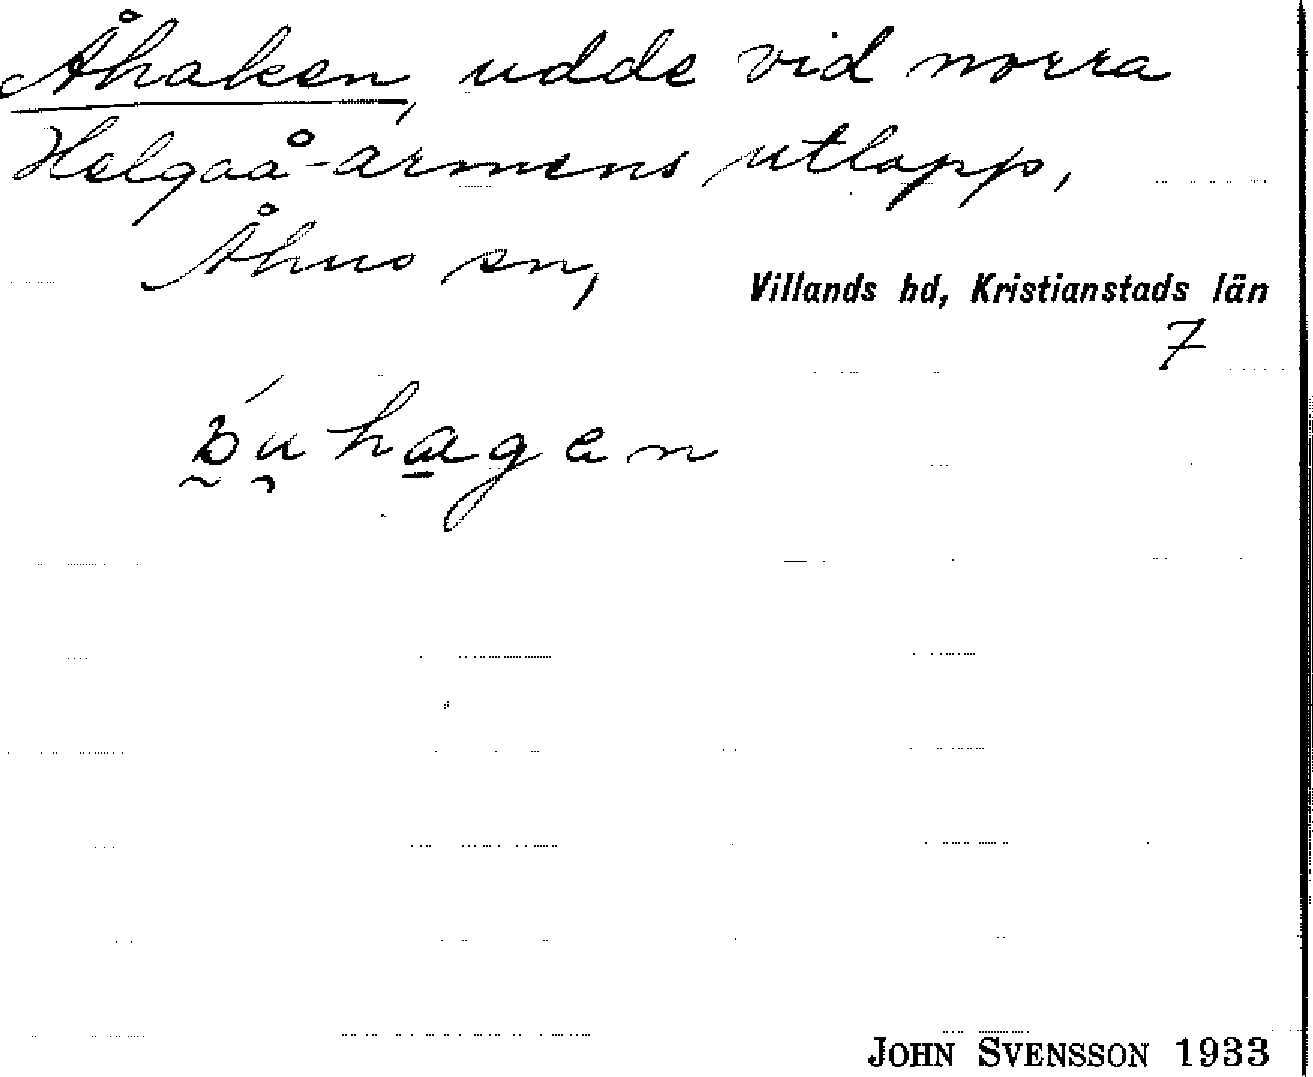 Åhaken, udde vid norra
Helgaå-armens utlopp,
Åhus sn,
Villands hd, Kristianstads län
7
hagen
JOHN SVENSSON 1933